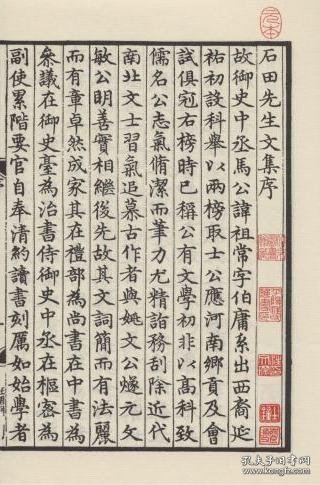 石田先生文集序
故御史中丞馬公諱祖常字伯庸系出西裔延
祐初設科舉以兩榜取士公應河南鄉貢及會
試俱冠右榜時已稱公有文學初非以高科致
儒名公志氣脩潔而筆力尤精詣務刮除近代
南北文士習氣追慕古作者與姚文公燧元文
敏公明善實相繼後先故其文詞簡而有法麗
而有章卓然成家其在禮部為尚書在中書為
叅議在御史臺為治書侍御史中丞在樞密為
副使累階要官自奉清約讀書刻厲如始學者
孔夫子旧书网